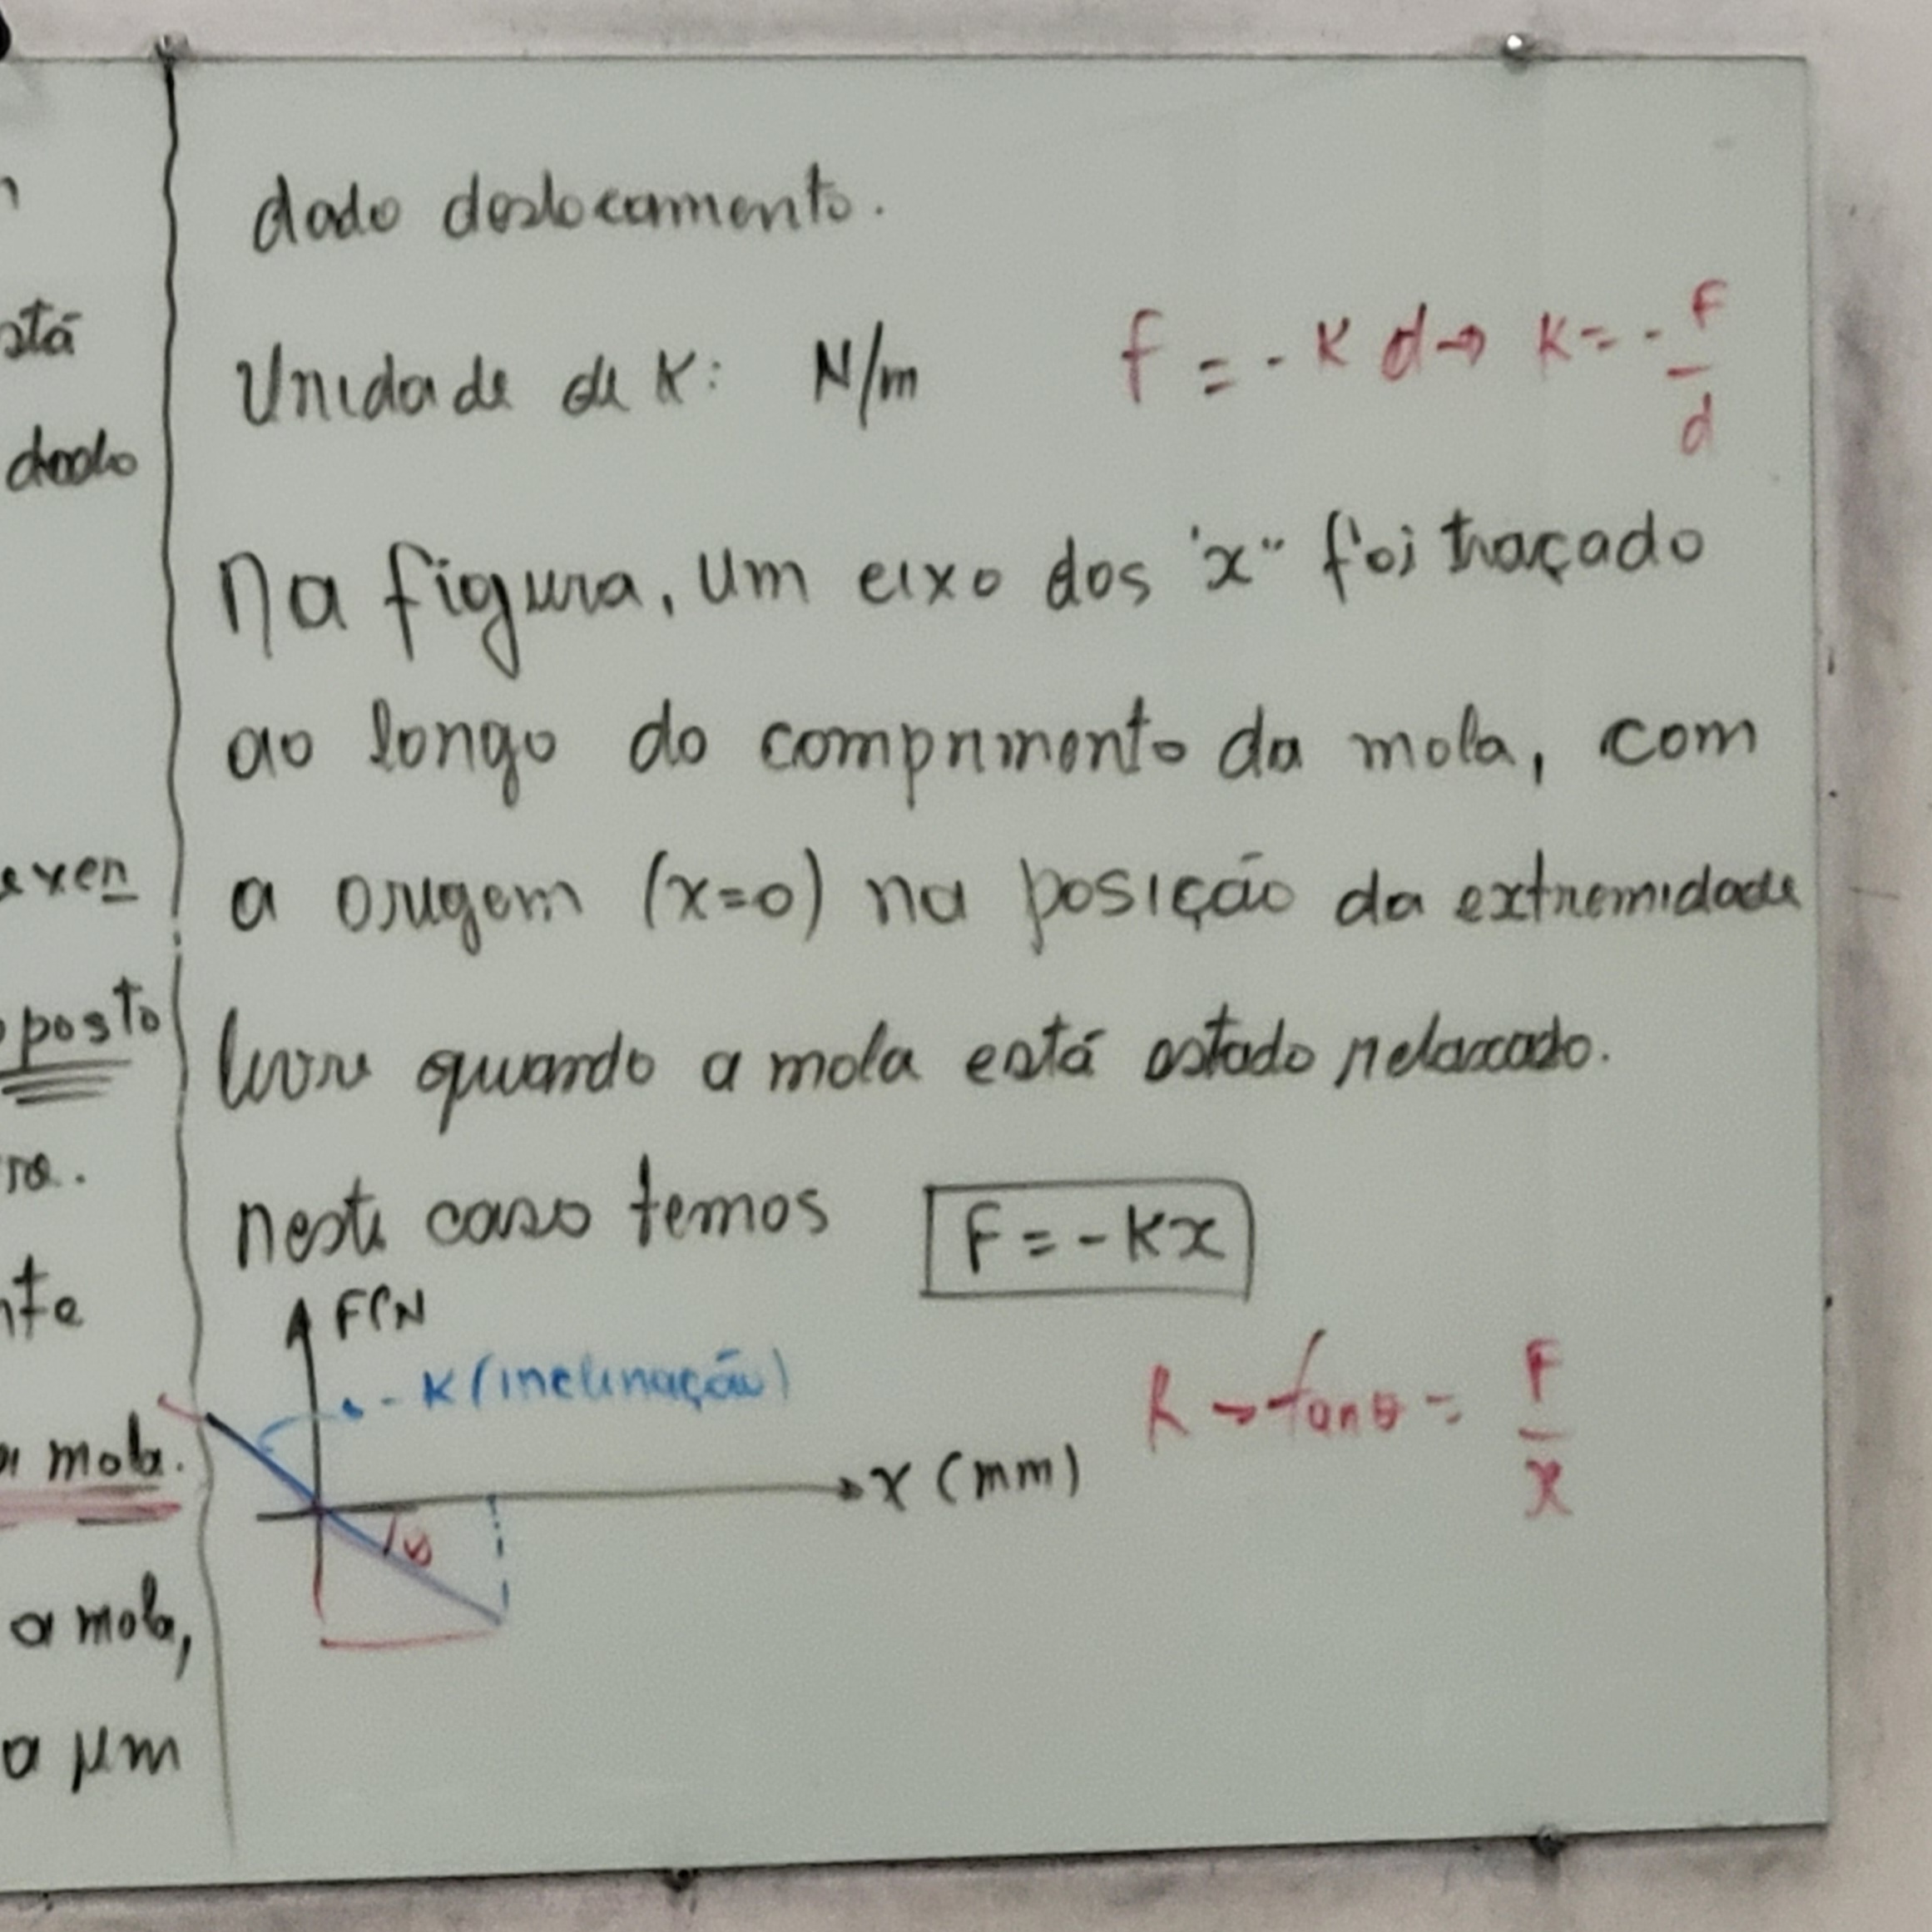 stá
dado
exen
posto
ra.
nte
a mola.
a mola,
a um
dado deslocamento.
Unidade de K: N/m F = - K d → K = - F/d
Na figura, um eixo dos "x" foi traçado
ao longo do comprimento da mola, com
a origem (x=0) na posição da extremidade
livre quando a mola está estado relaxado.
neste caso temos F = - Kx
F(N
- K (inclinação)
R → tan θ = F/x
x (mm)
θ